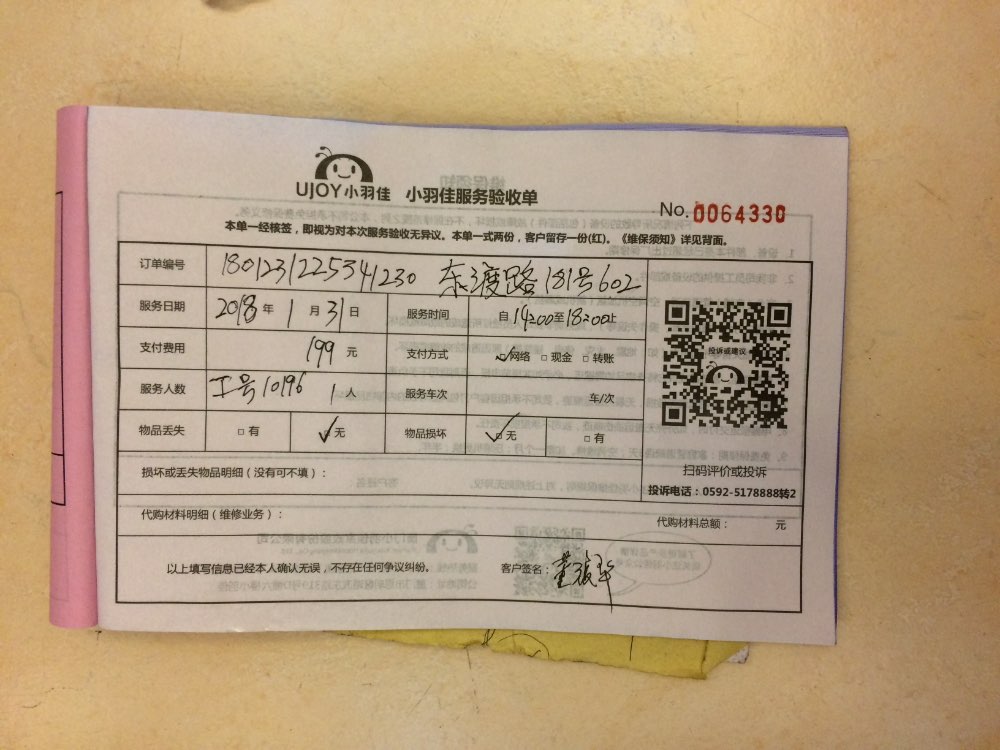 UJOY小羽佳 小羽佳服务验收单
No. 0064330
本单一经核签，即视为对本次服务验收无异议。本单一式两份，客户留存一份(红)。《维保须知》详见背面。
订单编号 1801231225341230 东渡路181号602
服务日期 2018年 1月31日 服务时间 自14:00至18:00止
支付费用 199元 支付方式 ☑网络 □现金 □转账
服务人数 工号10196 1人 服务车次 车/次
物品丢失 □有 ☑无 物品损坏 ☑无 □有
投诉或建议
扫码评价或投诉
损坏或丢失物品明细（没有可不填）：
投诉电话：0592-5178888转2
代购材料明细（维修业务）： 代购材料总额： 元
以上填写信息已经本人确认无误，不存在任何争议纠纷。 客户签名：